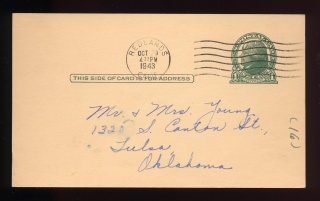 REDLANDS
OCT
4 PM
1943
CALIF
THIS SIDE OF CARD IS FOR ADDRESS
Mr. & Mrs. Young
132 S. Canton St.,
Tulsa
Oklahoma